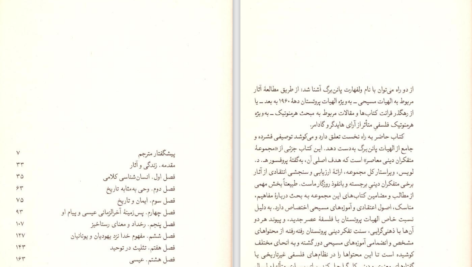 از دو راه می‌توان با نام ولفهارت پانن‌برگ آشنا شد، از طریق مطالعهٔ آثار
مربوط به الهیات مسیحی ــ به ویژه الهیات پروتستان دههٔ ۱۹۶۰ به بعد ــ یا
از رهگذر قرائت کتاب‌ها و مقالات مربوط به مبحث هرمنوتیک ــ به ویژه
هرمنوتیک فلسفی متأثر از آرای هایدگر و گادامر.
کتاب حاضر به راه نخست تعلق دارد و می‌کوشد توصیفی فشرده و
جامع از الهیات پانن‌برگ به‌دست دهد. این کتاب جزئی از «مجموعهٔ
متفکران دینی معاصر» است که هدف اصلی آن، به‌گفتهٔ پروفسور ه. د.
لوییس، ویراستار کل مجموعه، ارائهٔ ارزیابی و سنجشی انتقادی از آثار
برخی متفکران دینی برجسته و بانفوذ روزگار ماست. طبیعتاً بخش مهمی
از مطالب و مضامین کتاب‌های این مجموعه به بحث دربارهٔ مفاهیم،
مناسک، اصول اعتقادی و آموزه‌های مسیحی اختصاص دارد. به دلیل
نسبت خاص الهیات پروتستان با فلسفهٔ عصر جدید، و پیوند هر دو
آن‌ها با ذهنی‌گرایی، سنت تفکر دینی پروتستان رفته‌رفته از محتواهای
مشخص و انضمامی آموزه‌های مسیحی دور گشته و به انحای مختلف
کوشیده است تا این محتواها را در
پیشگفتار مترجم ۷
مقدمه. زندگی و آثار ۳۳
فصل اول. انسان‌شناسی کلامی ۳۵
فصل دوم. وحی به‌مثابه تاریخ ۶۳
فصل سوم. ایمان و تاریخ ۷۵
فصل چهارم. پس‌زمینهٔ آخرالزمانی عیسی و پیام او ۹۳
فصل پنجم. رخداد و معنای رستاخیز ۱۰۷
فصل ششم. مفهوم خدا نزد یهودیان و یونانیان ۱۲۷
فصل هفتم. تثلیث در توحید ۱۴۳
فصل هشتم. عیسی ۱۶۳